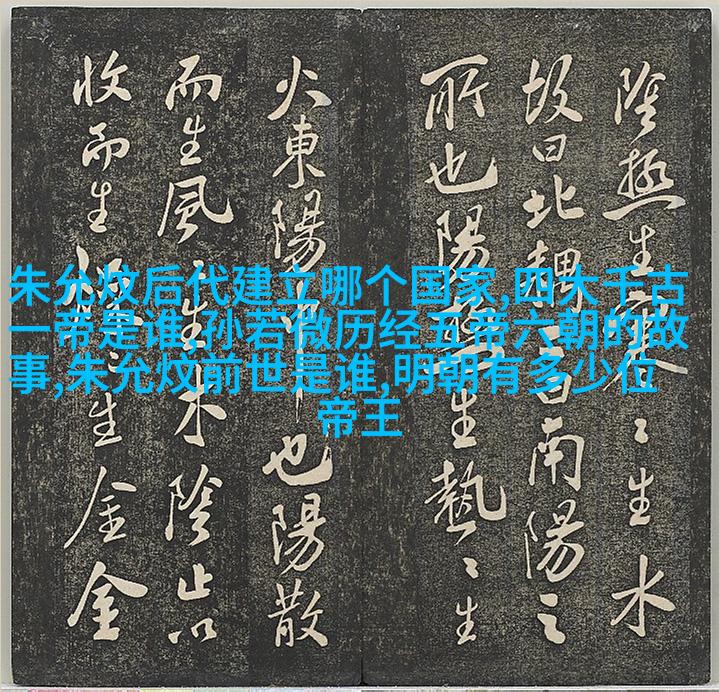 朱允炆后代建立哪个国家,四大千古
一帝是谁,孙若微历经五帝六朝的故
事,朱允炆前世是谁,明朝有多少位
帝王
陰極生寒〻生水
故曰北耦曰南陽之
所也陽極生熱〻生
火東陽也陽散
而生風〻生木陰止以
收而生燥〻生金金